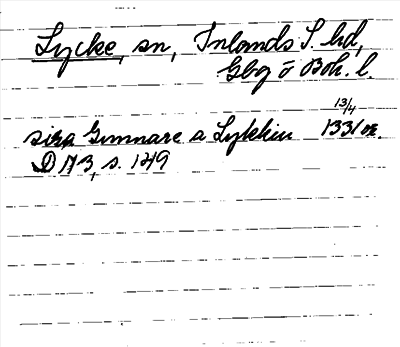 Lycke, sn, Inlands S. hd,
Gbg o Boh. l.
13/4
sira Gunnare a Lykkiu 1331 or.
D N 3, s. 149